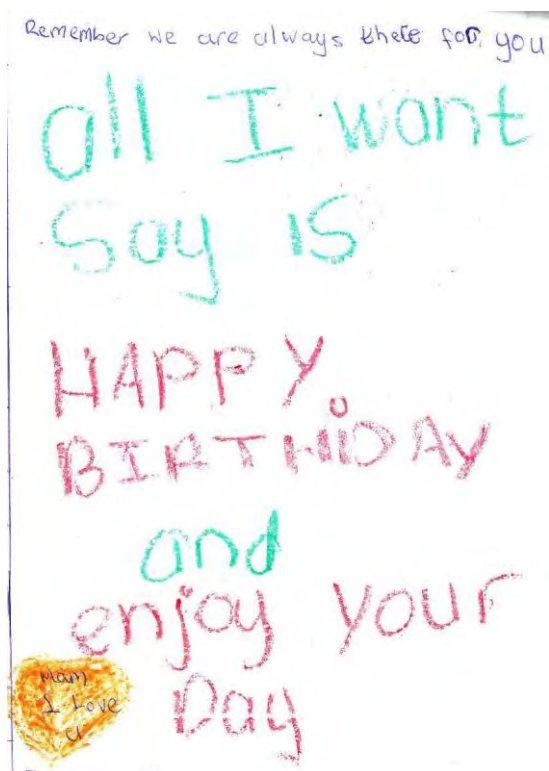 Remember we are always there for you
all I want
Say is
HAPPY
BIRTHiDAY
and
enjoy your
Day
Mam
I Love
u